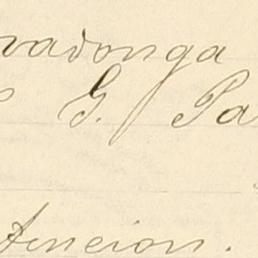 vadonga
G. Pa
tencion.